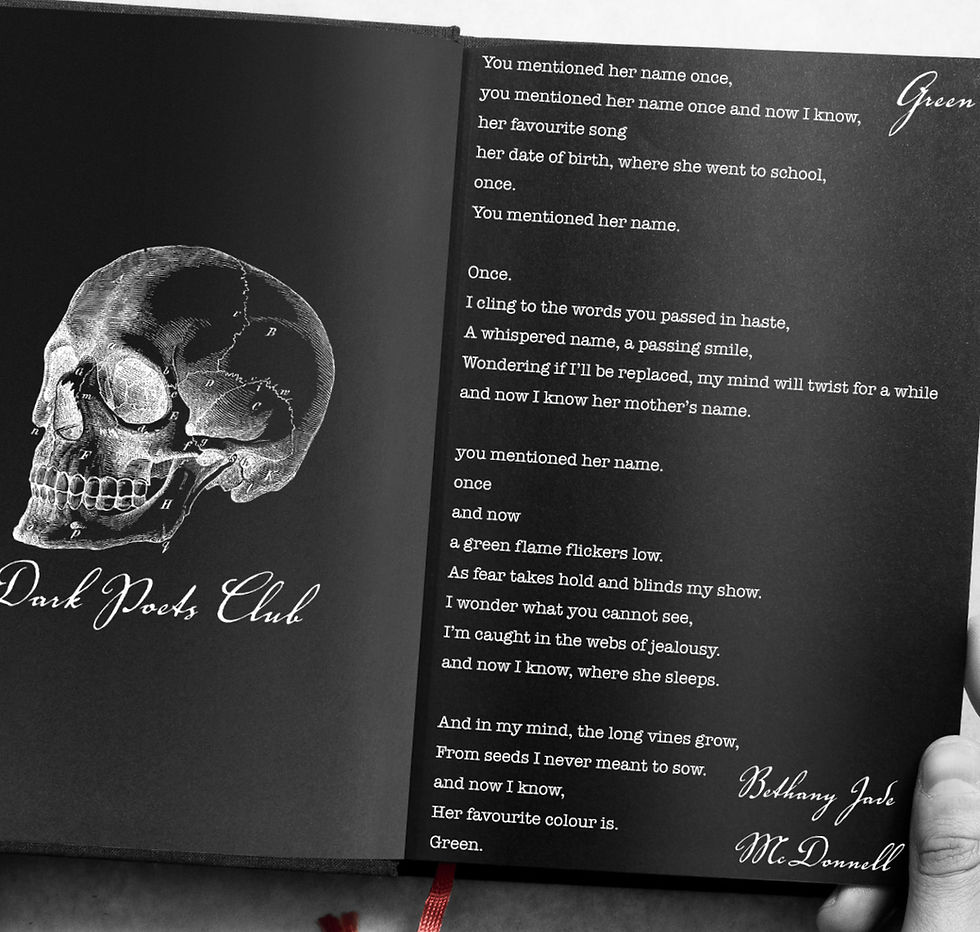 Dark Poets Club
Green
You mentioned her name once,
you mentioned her name once and now I know,
her favourite song
her date of birth, where she went to school,
once.
You mentioned her name.
Once.
I cling to the words you passed in haste,
A whispered name, a passing smile,
Wondering if I'll be replaced, my mind will twist for a while
and now I know her mother's name.
you mentioned her name.
once
and now
a green flame flickers low.
As fear takes hold and blinds my show.
I wonder what you cannot see,
I'm caught in the webs of jealousy.
and now I know, where she sleeps.
And in my mind, the long vines grow,
From seeds I never meant to sow.
and now I know,
Her favourite colour is.
Green.
Bethany Jade
McDonnell